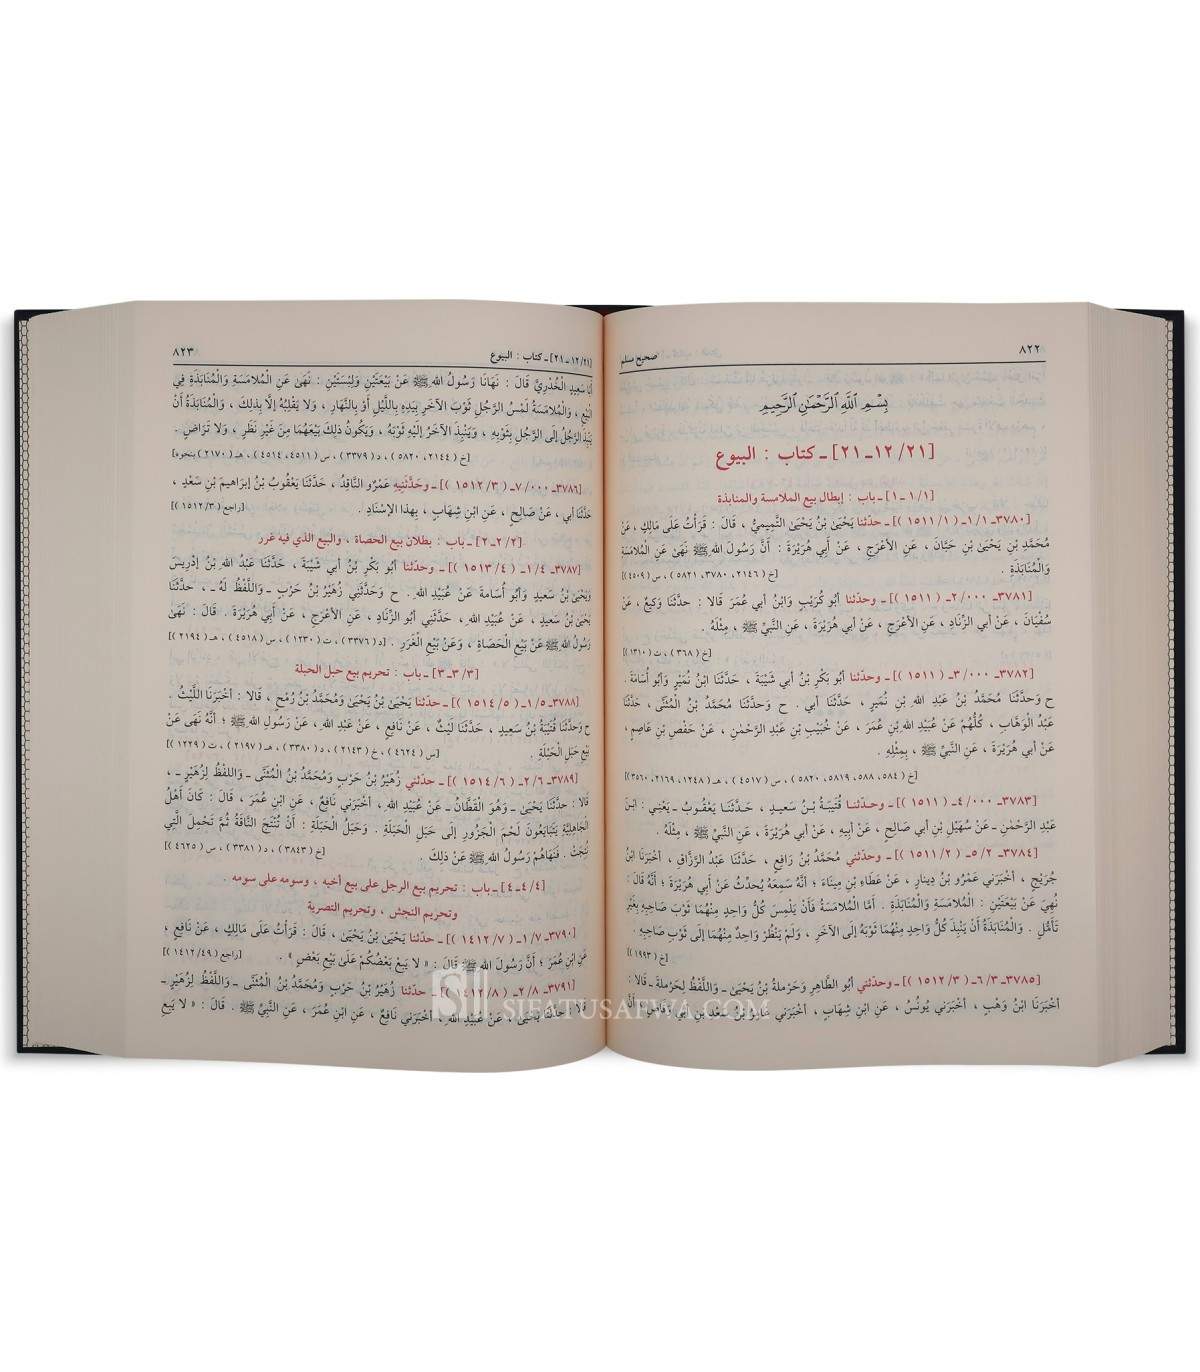 ٨٢٢
صحيح مسلم
بِسْمِ اللَّهِ الرَّحْمَٰنِ الرَّحِيمِ
[٢١/ ١٢ـ ٢١] ـ كتاب : البيوع
[١/ ١ـ ١] ـ باب : إبطال بيع الملامسة والمنابذة
[٣٧٨٠ـ ١/١ـ ( ١٥١١/١ )] ـ حدّثنا يَحْيَىٰ بْنُ يَحْيَىٰ التَّمِيمِيُّ ، قَالَ : قَرَأْتُ عَلَىٰ مَالِكٍ ، عَنْ
مُحَمَّدِ بْنِ يَحْيَىٰ بْنِ حَبَّانَ ، عَنِ الأَعْرَجِ ، عَنْ أَبِي هُرَيْرَةَ : أَنَّ رَسُولَ اللهِ ﷺ نَهَىٰ عَنِ الْمُلامَسَةِ
وَالْمُنَابَذَةِ . [خ ( ٢١٤٦، ٣٧٨٠، ٥٨٢١ ) ، س ( ٤٥٠٩ )]
[٣٧٨١ـ ٢/٠٠٠ـ ( ١٥١١ )] ـ وحدّثنا أَبُو كُرَيْبٍ وَابْنُ أَبِي عُمَرَ قَالا : حدَّثَنَا وَكِيعٌ ، عَنْ
سُفْيَانَ ، عَنْ أَبِي الزِّنَادِ ، عَنِ الأَعْرَجِ ، عَنْ أَبِي هُرَيْرَةَ ، عَنِ النَّبِيِّ ﷺ ، مِثْلَهُ .
[خ ( ٣٦٨ ) ، ت ( ١٣١٠ )]
[٣٧٨٢ـ ٣/٠٠٠ـ ( ١٥١١ )] ـ وحدّثنا أَبُو بَكْرِ بْنُ أَبِي شَيْبَةَ ، حَدَّثَنَا ابْنُ نُمَيْرٍ وَأَبُو أُسَامَةَ .
ح وَحدَّثَنَا مُحَمَّدُ بْنُ عَبدِ اللهِ بْنِ نُمَيرٍ ، حَدَّثَنَا أَبِي . ح وَحدَّثَنَا مُحَمَّدُ بْنُ الْمُثَنَّى ، حَدَّثَنَا
عَبْدُ الْوَهَّابِ ، كُلُّهُمْ عَنْ عُبَيْدِ اللهِ بْنِ عُمَرَ ، عَنْ خُبَيْبِ بْنِ عَبْدِ الرَّحْمٰنِ ، عَنْ حَفْصِ بْنِ عَاصِمٍ ،
عَنْ أَبِي هُرَيْرَةَ ، عَنِ النَّبِيِّ ﷺ ، بِمِثْلِهِ .
[خ ( ٥٨٤، ٥٨٨، ٥٨١٩، ٥٨٢٠ ) ، س ( ٤٥١٧ ) ، هـ ( ١٢٤٨، ٢١٦٩، ٣٥٦٠ )]
[٣٧٨٣ـ ٤/٠٠٠ـ ( ١٥١١ )] ـ وحـدّثنـا قُتَيْبَةُ بْنُ سَعِيدٍ ، حَـدَّثَنَـا يَعْقُـوبُ ـ يَعْنِي : ابْنَ
عَبْدِ الرَّحْمٰنِ ـ عَنْ سُهَيْلِ بْنِ أَبِي صَالِحٍ ، عَنْ أَبِيهِ ، عَنْ أَبِي هُرَيْرَةَ ، عَنِ النَّبِيِّ ﷺ ، مِثْلَهُ .
[٣٧٨٤ـ ٥/٢ـ ( ١٥١١/٢ )] ـ وحدّثني مُحَمَّدُ بْنُ رَافِعٍ ، حَدَّثَنَا عَبْدُ الرَّزَّاقِ ، أَخْبَرَنَا ابْنُ
جُرَيْجٍ ، أَخْبَرَنِي عَمْرُو بْنُ دِينَارٍ ، عَنْ عَطَاءِ بْنِ مِينَاءَ ؛ أَنَّهُ سَمِعَهُ يُحَدِّثُ عَنْ أَبِي هُرَيْرَةَ ؛ أَنَّهُ قَالَ :
نُهِيَ عَنْ بَيْعَتَيْنِ : الْمُلامَسَةِ وَالْمُنَابَذَةِ . أَمَّا الْمُلامَسَةُ فَأَنْ يَلْمِسَ كُلُّ وَاحِدٍ مِنْهُمَا ثَوْبَ صَاحِبِهِ بِغَيْرِ
تَأَمُّلٍ . وَالْمُنَابَذَةُ أَنْ يَنْبِذَ كُلُّ وَاحِدٍ مِنْهُمَا ثَوْبَهُ إِلَى الآخَرِ ، وَلَمْ يَنْظُرْ وَاحِدٌ مِنْهُمَا إِلَى ثَوْبِ صَاحِبِهِ .
[خ ( ١٩٩٣ )]
[٣٧٨٥ـ ٦/٣ـ ( ١٥١٢/٣ )] ـ وحدّثني أَبُو الطَّاهِرِ وَحَرْمَلَةُ بْنُ يَحْيَىٰ ـ وَاللَّفْظُ لِحَرْمَلَةَ ـ قَالا :
أَخْبَرَنَا ابْنُ وَهْبٍ ، أَخْبَرَنِي يُونُسُ ، عَنِ ابْنِ شِهَابٍ ، أَخْبَرَنِي عَامِرُ بْنُ سَعْدِ بْنِ أَبِي وَقَّاصٍ ؛ أَنَّ
[٢١/ ١٢ـ ٢١] ـ كتاب : البيوع
٨٢٣
أَبَا سَعِيدٍ الْخُدْرِيَّ قَالَ : نَهَانَا رَسُولُ اللهِ ﷺ عَنْ بَيْعَتَيْنِ وَلِبْسَتَيْنِ : نَهَىٰ عَنِ الْمُلامَسَةِ وَالْمُنَابَذَةِ فِي
الْبَيْعِ ، وَالْمُلامَسَةُ لَمْسُ الرَّجُلِ ثَوْبَ الآخَرِ بِيَدِهِ بِاللَّيْلِ أَوْ بِالنَّهَارِ ، وَلا يَقْلِبُهُ إِلَّا بِذَلِكَ ، وَالْمُنَابَذَةُ أَنْ
يَنْبِذَ الرَّجُلُ إِلَى الرَّجُلِ بِثَوْبِهِ ، وَيَنْبِذَ الآخَرُ إِلَيْهِ ثَوْبَهُ ، وَيَكُونُ ذلِكَ بَيْعَهُمَا مِنْ غَيْرِ نَظَرٍ ، وَلا تَرَاضٍ .
[خ ( ٢١٤٤، ٥٨٢٠ ) ، د ( ٣٣٧٩ ) ، س ( ٤٥١١، ٤٥١٤ ) ، هـ ( ٢١٧٠ ) بنحوه]
[٣٧٨٦ـ ٧/٠٠٠ـ ( ١٥١٢/٣ )] ـ وحَدَّثَنِيهِ عَمْرٌو النَّاقِدُ ، حَدَّثَنَا يَعْقُوبُ بْنُ إِبرَاهِيمَ بْنِ سَعْدٍ ،
حَدَّثَنَا أَبِي ، عَنْ صَالِحٍ ، عَنِ ابْنِ شِهَابٍ ، بِهٰذَا الإِسْنَادِ . [راجع ( ١٥١٢/٣ )]
[٢/ ٢ـ ٢] ـ باب : بطلان بيع الحصاة ، والبيع الذي فيه غرر
[٣٧٨٧ـ ١/٤ـ ( ١٥١٣/٤ )] ـ وحدّثنا أَبُو بَكْرِ بْنُ أَبِي شَيْبَةَ ، حَدَّثَنَا عَبْدُ اللهِ بْنُ إِدْرِيسَ
وَيَحْيَىٰ بْنُ سَعِيدٍ وَأَبُو أُسَامَةَ عَنْ عُبَيْدِ اللهِ . ح وَحَدَّثَنِي زُهَيْرُ بْنُ حَرْبٍ ـ وَاللَّفْظُ لَهُ ـ ، حَدَّثَنَا
يَحْيَىٰ بْنُ سَعِيدٍ ، عَنْ عُبَيْدِ اللهِ ، حَدَّثَنِي أَبُو الزِّنَادِ ، عَنِ الأَعْرَجِ ، عَنْ أَبِي هُرَيْرَةَ . قَالَ : نَهَىٰ
رَسُولُ اللهِ ﷺ عَنْ بَيْعِ الْحَصَاةِ ، وَعَنْ بَيْعِ الْغَرَرِ . [د ( ٣٣٧٦ ) ، ت ( ١٢٣٠ ) ، س ( ٤٥١٨ ) ، هـ ( ٢١٩٤ )]
[٣/ ٣ـ ٣] ـ باب : تحريم بيع حبل الحبلة
[٣٧٨٨ـ ١/٥ـ ( ١٥١٤/٥ )] ـ حدّثنا يَحْيَىٰ بْنُ يَحْيَىٰ وَمُحَمَّدُ بْنُ رُمْحٍ ، قَالا : أَخْبَرَنَا اللَّيْثُ .
ح وَحَدَّثَنَا قُتَيْبَةُ بْنُ سَعِيدٍ ، حَدَّثَنَا لَيْثٌ ، عَنْ نَافِعٍ ، عَنْ عَبْدِ اللهِ ، عَنْ رَسُولِ اللهِ ﷺ ؛ أَنَّهُ نَهَىٰ عَنْ
بَيْعِ حَبَلِ الْحَبَلَةِ . [س ( ٤٦٢٤ ) ، خ ( ٢١٤٣ ) ، د ( ٣٣٨٠ ) ، هـ ( ٢١٩٧ ) ، ت ( ١٢٢٩ )]
[٣٧٨٩ـ ٢/٦ـ ( ١٥١٤/٦ )] ـ حدّثني زُهَيْرُ بْنُ حَرْبٍ وَمُحَمَّدُ بْنُ الْمُثَنَّى ـ وَاللَّفْظُ لِزُهَيْرٍ ـ ،
قَالا : حدَّثَنَا يَحْيَىٰ ـ وَهُوَ الْقَطَّانُ ـ عَنْ عُبَيْدِ اللهِ ، أَخْبَرَنِي نَافِعٌ ، عَنِ ابْنِ عُمَرَ ، قَالَ : كَانَ أَهْلُ
الْجَاهِلِيَّةِ يَتَبَايَعُونَ لَحْمَ الْجَزُورِ إِلَىٰ حَبَلِ الْحَبَلَةِ . وَحَبَلُ الْحَبَلَةِ : أَنْ تُنْتَجَ النَّاقَةُ ثُمَّ تَحْمِلَ الَّتِي
نُتِجَتْ . فَنَهَاهُمْ رَسُولُ اللهِ ﷺ عَنْ ذلِكَ . [خ ( ٣٨٤٣ ) ، د ( ٣٣٨١ ) ، س ( ٤٦٢٥ )]
[٤/ ٤ـ ٤] ـ باب : تحريم بيع الرجل على بيع أخيه ، وسومه على سومه .
وتحريم النجش ، وتحريم التصرية
[٣٧٩٠ـ ١/٧ـ ( ١٤١٢/٧ )] ـ حدّثنا يَحْيَىٰ بْنُ يَحْيَىٰ ، قَالَ : قَرَأْتُ عَلَى مَالِكٍ ، عَنْ نَافِعٍ ،
عَنِ ابْنِ عُمَرَ ؛ أَنَّ رَسُولَ اللهِ ﷺ قَالَ : « لا يَبِعْ بَعْضُكُمْ عَلَىٰ بَيْعِ بَعْضٍ » . [راجع ( ١٤١٢/٤٩ )]
[٣٧٩١ـ ٢/٨ـ ( ١٤١٢/٨ )] ـ حدّثنا زُهَيْرُ بْنُ حَرْبٍ وَمُحَمَّدُ بْنُ الْمُثَنَّى ـ وَاللَّفْظُ لِزُهَيْرٍ ـ
قَالا : حدَّثَنَا يَحْيَىٰ ، عَنْ عُبَيْدِ اللهِ ، أَخْبَرَنِي نَافِعٌ ، عَنِ ابْنِ عُمَرَ ، عَنِ النَّبِيِّ ﷺ . قَالَ : « لا يَبِعِ
SIFATUSAFWA.COM